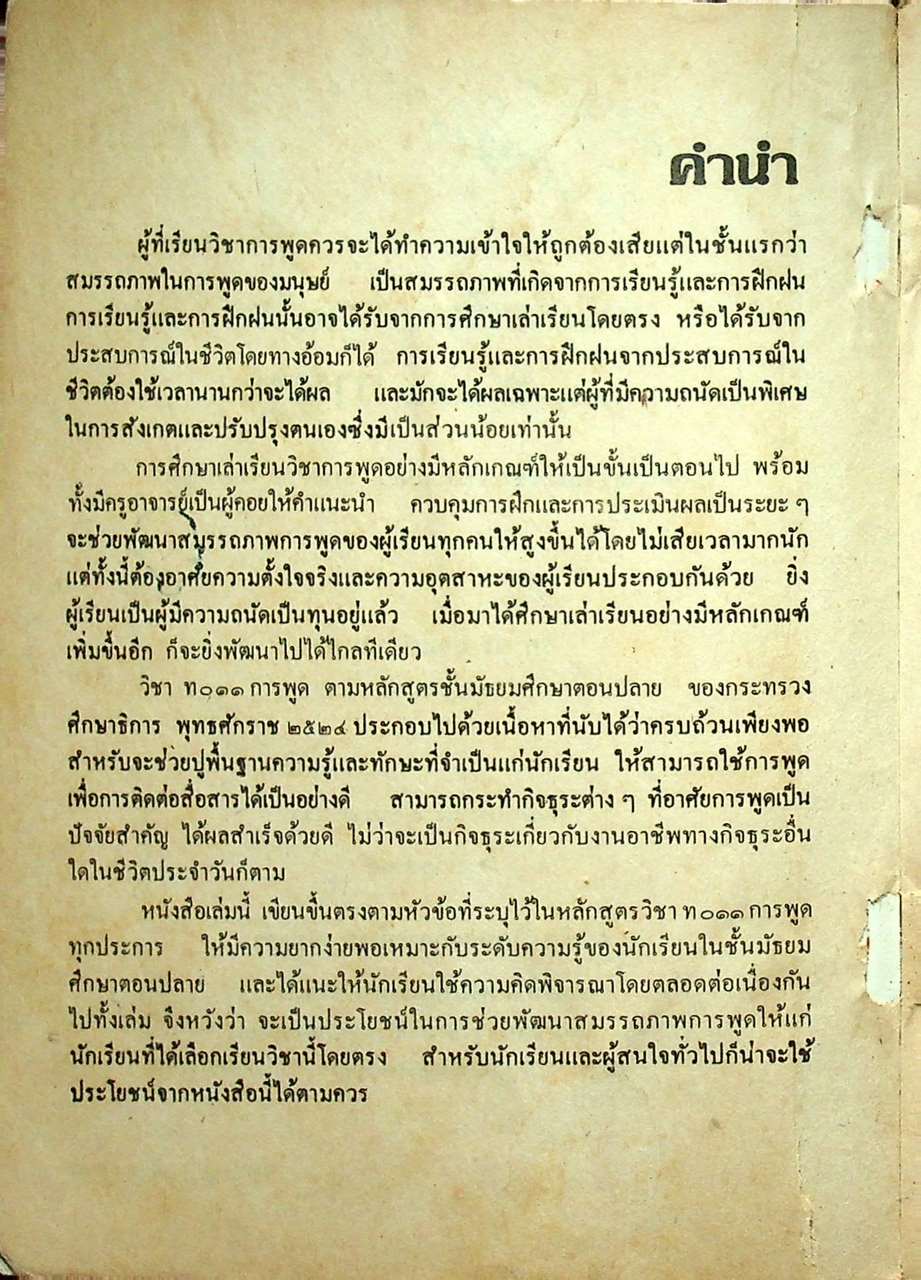 คำนำ
ผู้ที่เรียนวิชาการพูดควรจะได้ทำความเข้าใจให้ถูกต้องเสียแต่ในชั้นแรกว่า
สมรรถภาพในการพูดของมนุษย์ เป็นสมรรถภาพที่เกิดจากการเรียนรู้และการฝึกฝน
การเรียนรู้และการฝึกฝนนั้นอาจได้รับจากการศึกษาเล่าเรียนโดยตรง หรือได้รับจาก
ประสบการณ์ในชีวิตโดยทางอ้อมก็ได้ การเรียนรู้และการฝึกฝนจากประสบการณ์ใน
ชีวิตต้องใช้เวลานานกว่าจะได้ผล และมักจะได้ผลเฉพาะแต่ผู้ที่มีความถนัดเป็นพิเศษ
ในการสังเกตและปรับปรุงตนเองซึ่งมีเป็นส่วนน้อยเท่านั้น
การศึกษาเล่าเรียนวิชาการพูดอย่างมีหลักเกณฑ์ให้เป็นขั้นเป็นตอนไป พร้อม
ทั้งมีครูอาจารย์เป็นผู้คอยให้คำแนะนำ ควบคุมการฝึกและการประเมินผลเป็นระยะ ๆ
จะช่วยพัฒนาสมรรถภาพการพูดของผู้เรียนทุกคนให้สูงขึ้นได้โดยไม่เสียเวลามากนัก
แต่ทั้งนี้ต้องอาศัยความตั้งใจจริงและความอุตสาหะของผู้เรียนประกอบกันด้วย ยิ่ง
ผู้เรียนเป็นผู้มีความถนัดเป็นทุนอยู่แล้ว เมื่อมาได้ศึกษาเล่าเรียนอย่างมีหลักเกณฑ์
เพิ่มขึ้นอีก ก็จะยิ่งพัฒนาไปได้ไกลทีเดียว
วิชา ท๐๑๑ การพูด ตามหลักสูตรชั้นมัธยมศึกษาตอนปลาย ของกระทรวง
ศึกษาธิการ พุทธศักราช ๒๕๒๔ ประกอบไปด้วยเนื้อหาที่นับได้ว่าครบถ้วนเพียงพอ
สำหรับจะช่วยปูพื้นฐานความรู้และทักษะที่จำเป็นแก่นักเรียน ให้สามารถใช้การพูด
เพื่อการติดต่อสื่อสารได้เป็นอย่างดี สามารถกระทำกิจธุระต่าง ๆ ที่อาศัยการพูดเป็น
ปัจจัยสำคัญ ได้ผลสำเร็จด้วยดี ไม่ว่าจะเป็นกิจธุระเกี่ยวกับงานอาชีพทางกิจธุระอื่น
ใดในชีวิตประจำวันก็ตาม
หนังสือเล่มนี้ เขียนขึ้นตรงตามหัวข้อที่ระบุไว้ในหลักสูตรวิชา ท๐๑๑ การพูด
ทุกประการ ให้มีความยากง่ายพอเหมาะกับระดับความรู้ของนักเรียนในชั้นมัธยม
ศึกษาตอนปลาย และได้แนะให้นักเรียนใช้ความคิดพิจารณาโดยตลอดต่อเนื่องกัน
ไปทั้งเล่ม จึงหวังว่า จะเป็นประโยชน์ในการช่วยพัฒนาสมรรถภาพการพูดให้แก่
นักเรียนที่ได้เลือกเรียนวิชานี้โดยตรง สำหรับนักเรียนและผู้สนใจทั่วไปก็น่าจะใช้
ประโยชน์จากหนังสือนี้ได้ตามควร